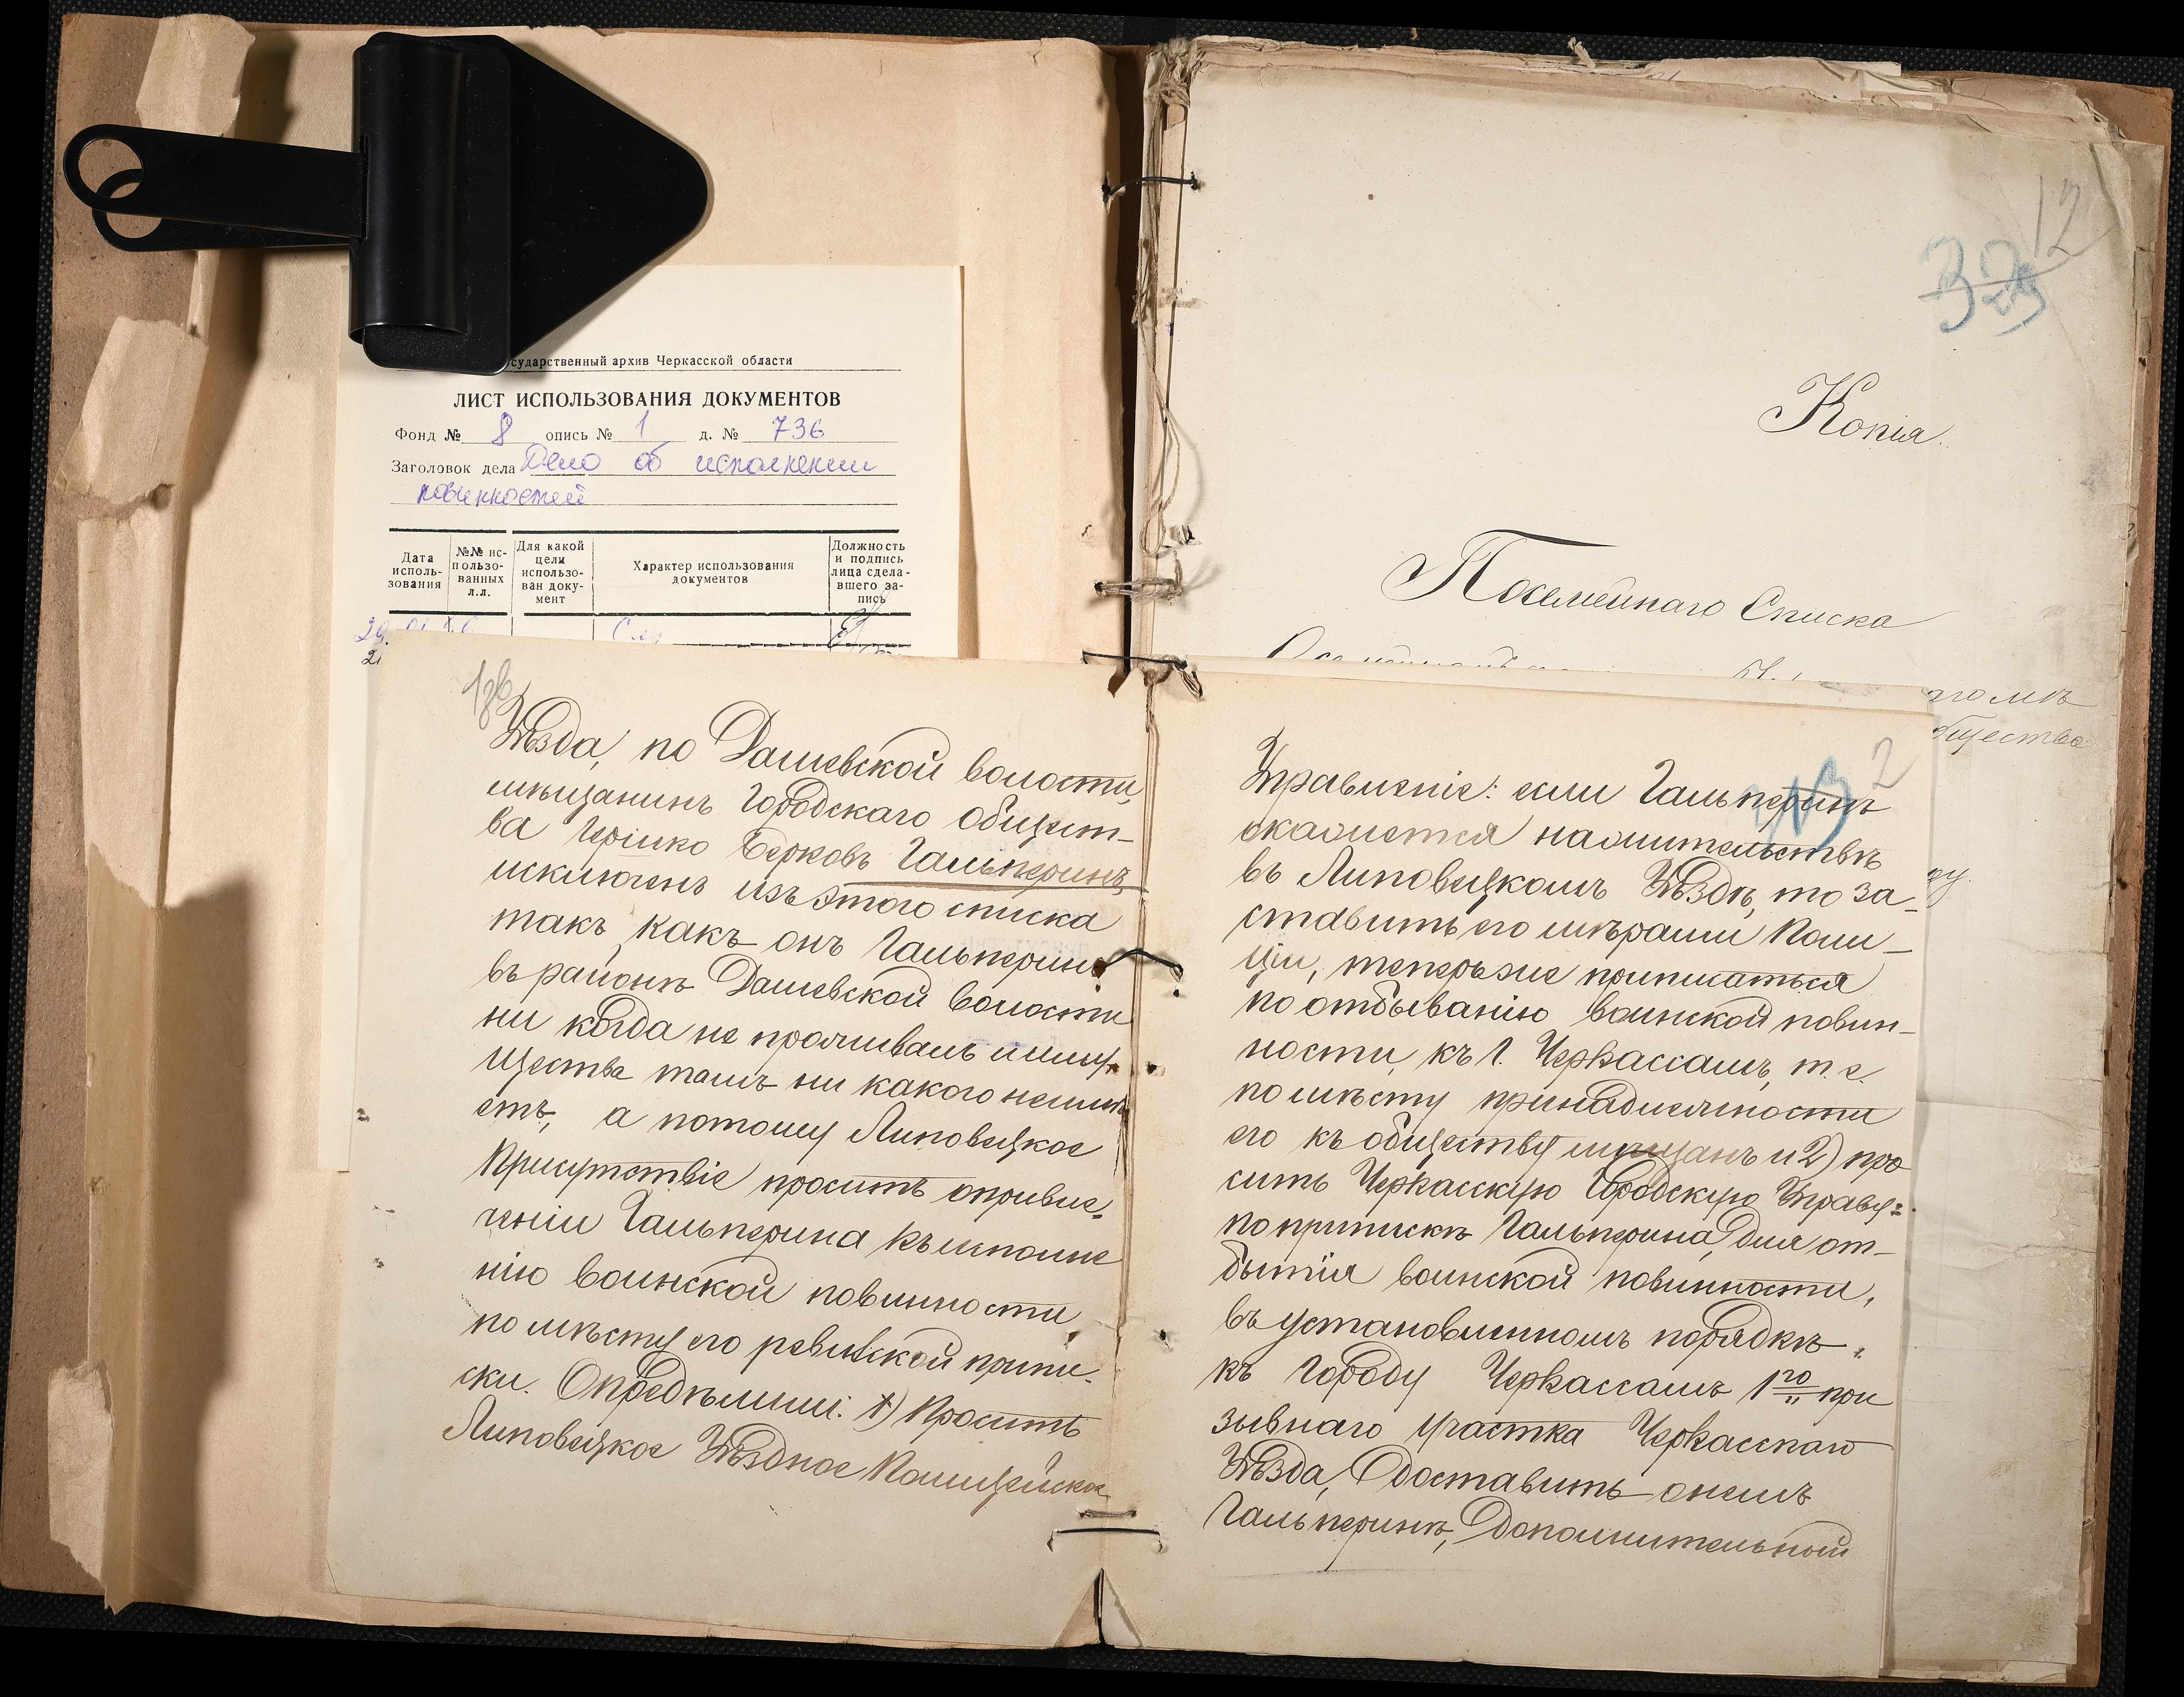 сударственный архив Черкасской области
ЛИСТ ИСПОЛЬЗОВАНИЯ ДОКУМЕНТОВ
Фонд № 8 опись № 1 д. № 736
Заголовок дела Дело об исполнении
повинностей
Дата исполь-зования
№№ ис-пользо-ванных л.л.
Для какой цели использо-ван доку-мент
Характер использования документов
Должность и подпись лица сдела-вшего за-пись
Уѣзда, по Дашевской волости,
мѣщанинъ Городскаго общест-
ва Гершко Берковъ Гальперинъ,
исключенъ изъ этого списка
такъ какъ онъ Гальперинъ
въ районѣ Дашевской волости
ни когда не проживалъ и иму-
щества тамъ ни какого неимѣ-
етъ, а потому Липовецкое
Присутствіе проситъ опривле-
ченіи Гальперина къ исполне
нію воинской повинности
по мѣсту его ревизской припи-
ски. Опредѣлили: 1) Просить
Липовецкое Уѣздное Полицейское
12
Копія.
Посемейнаго Списка
аго мѣ
бщества
2
Управленіе: если Гальперинъ
окажется на жительствѣ
въ Липовецкомъ Уѣздѣ, то за-
ставить его мѣрами Поли-
ціи, теперь же приписаться
по отбыванію воинской повин-
ности, къ г. Черкассамъ, т. е.
по мѣсту принадлежности
его къ обществу мѣщанъ и 2) про
сить Черкасскую Городскую Управу:
по припискѣ Гальперина, для от-
бытія воинской повинности,
въ установленномъ порядкѣ,
къ городу Черкассамъ 1го при
зывнаго участка Черкасскаго
Уѣзда, доставить о немъ
Гальперинѣ, дополнительный